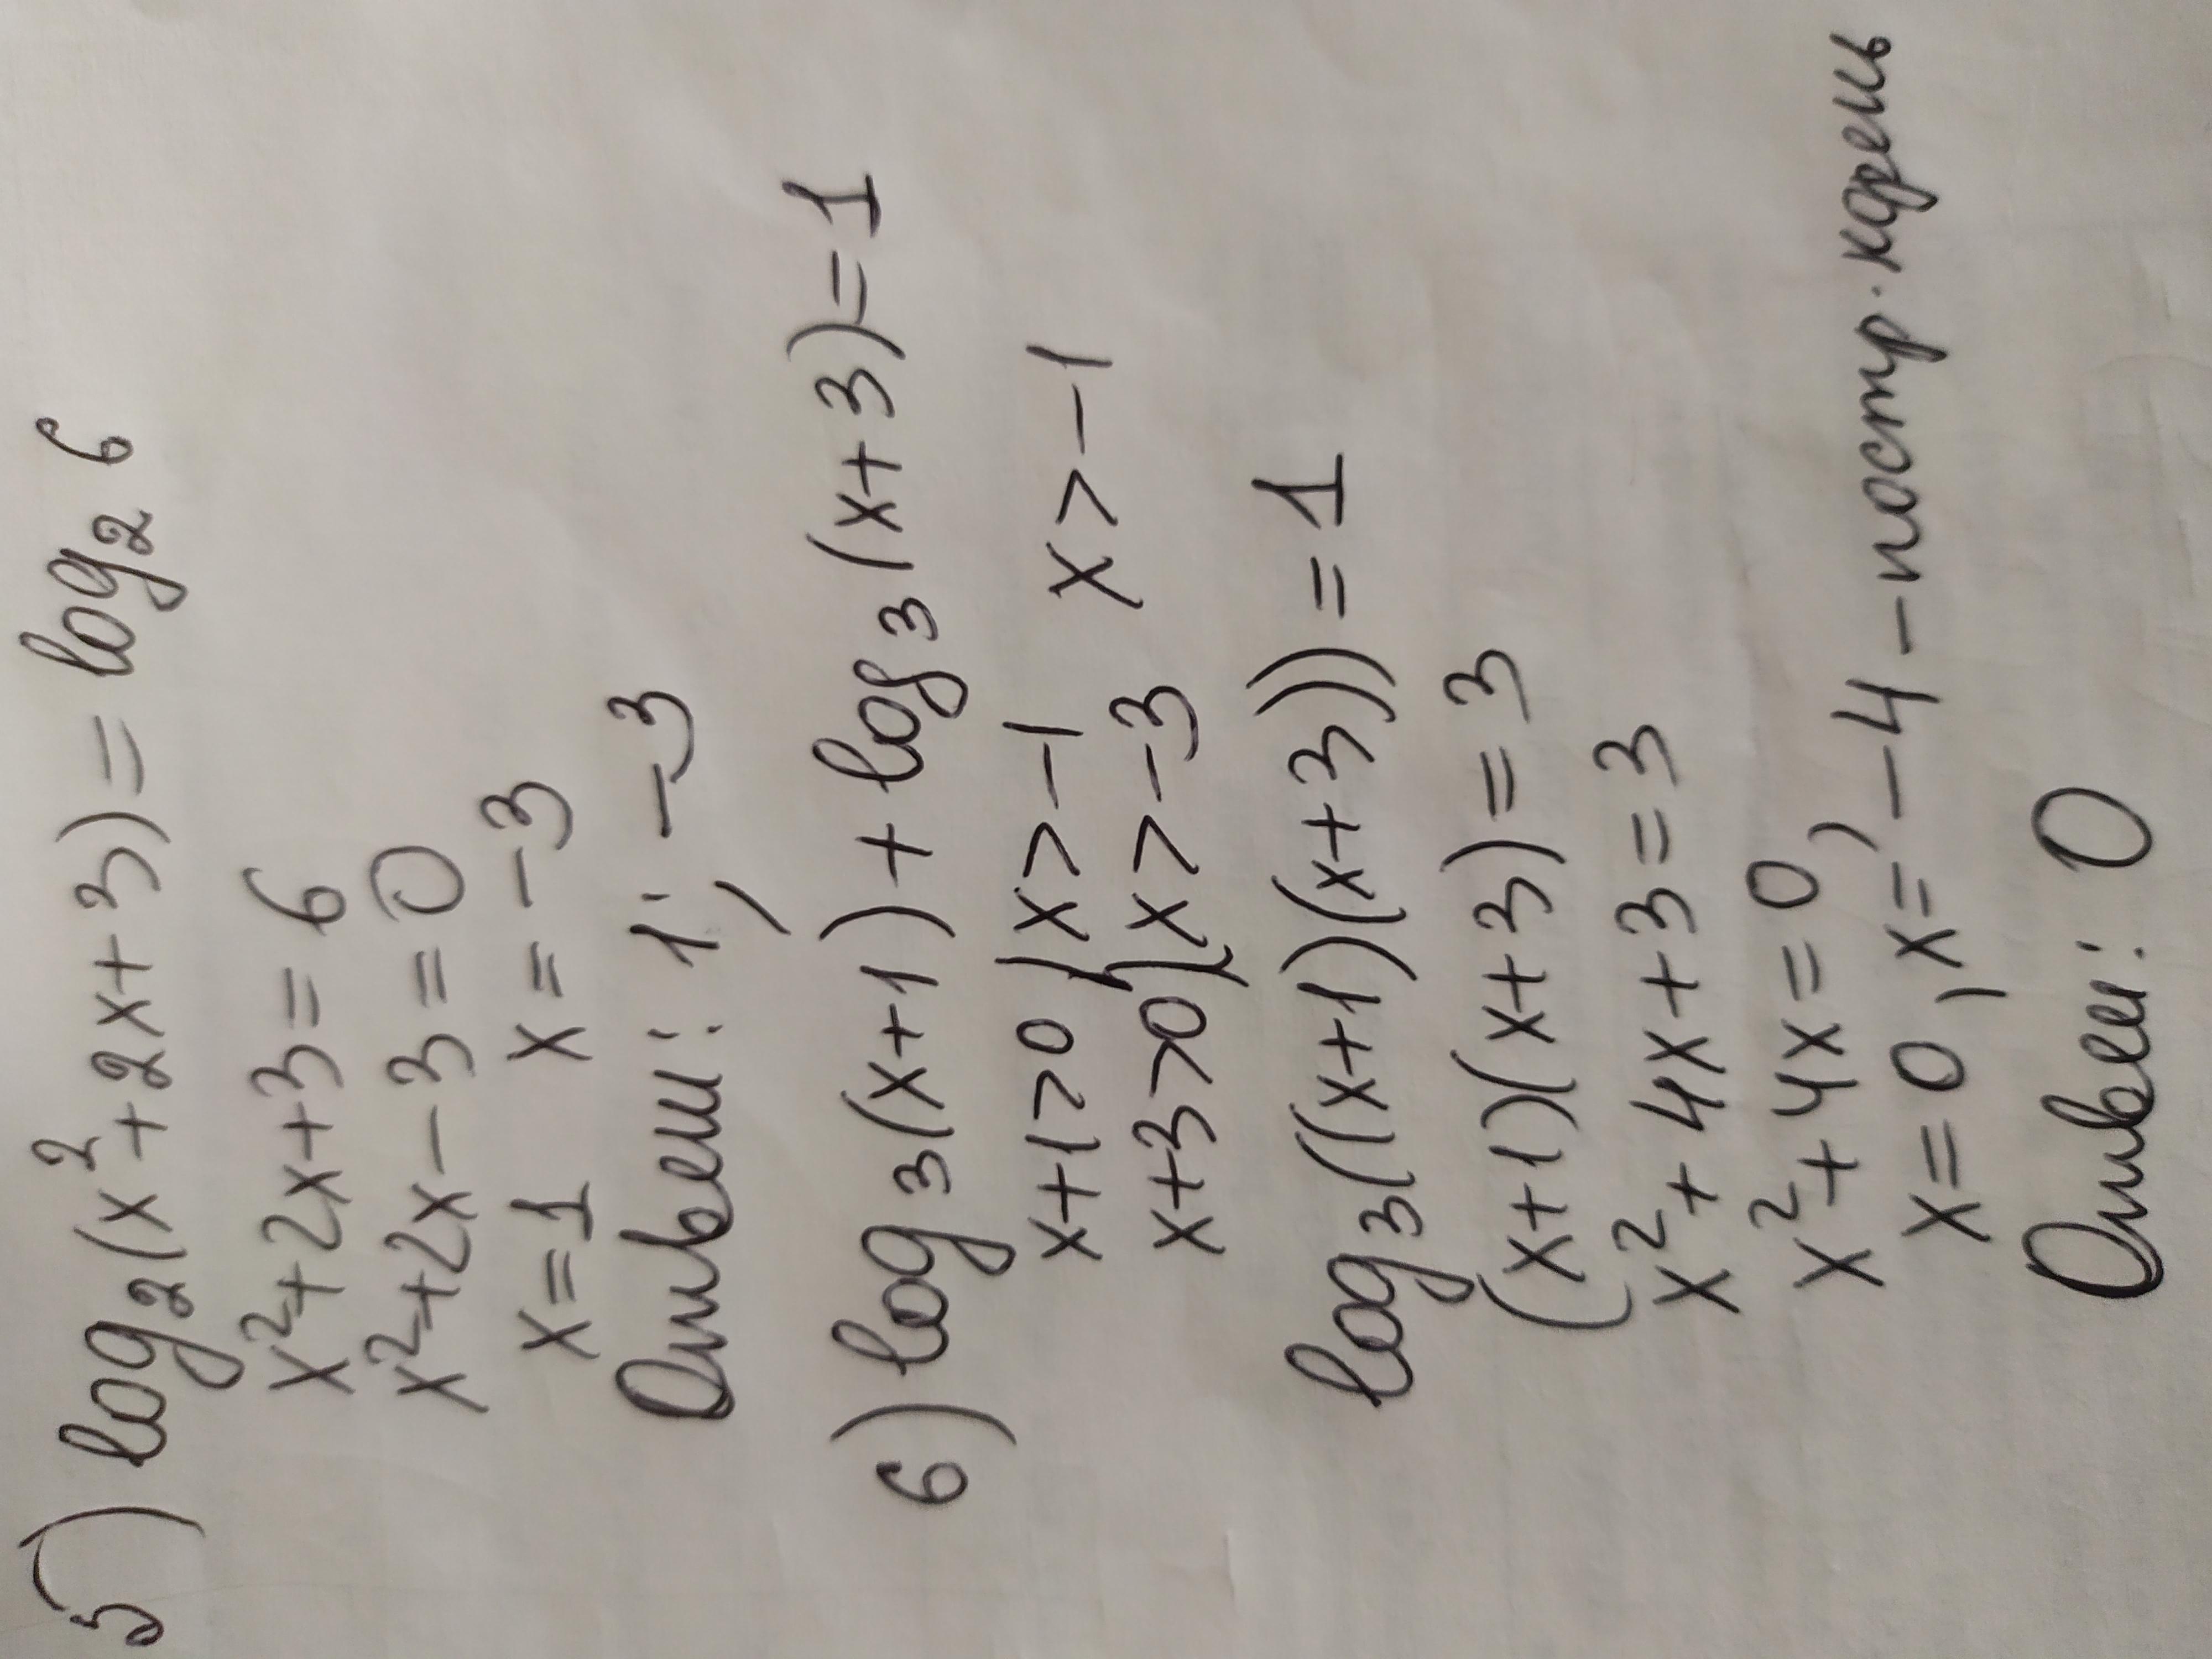 5) log₂(x²+2x+3)=log₂ 6
x²+2x+3=6
x²+2x-3=0
x=1 x=-3
Ответ: 1; -3
6) log₃(x+1)+log₃(x+3)=1
x+1>0 { x>-1 x>-1
x+3>0 { x>-3
log₃((x+1)(x+3))=1
(x+1)(x+3)=3
x²+4x+3=3
x²+4x=0,
x=0, x=-4-постр. корень
Ответ: 0